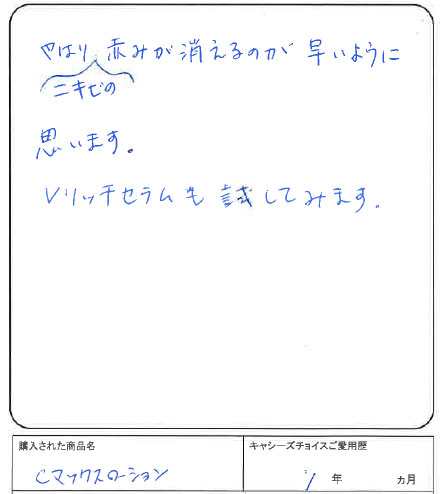 やはり、赤みが消えるのが早いように
ニキビの
思います。
Vリッチセラムも試してみます。
購入された商品名
キャシーズチョイスご愛用歴
Cマックスローション
1年 ヵ月